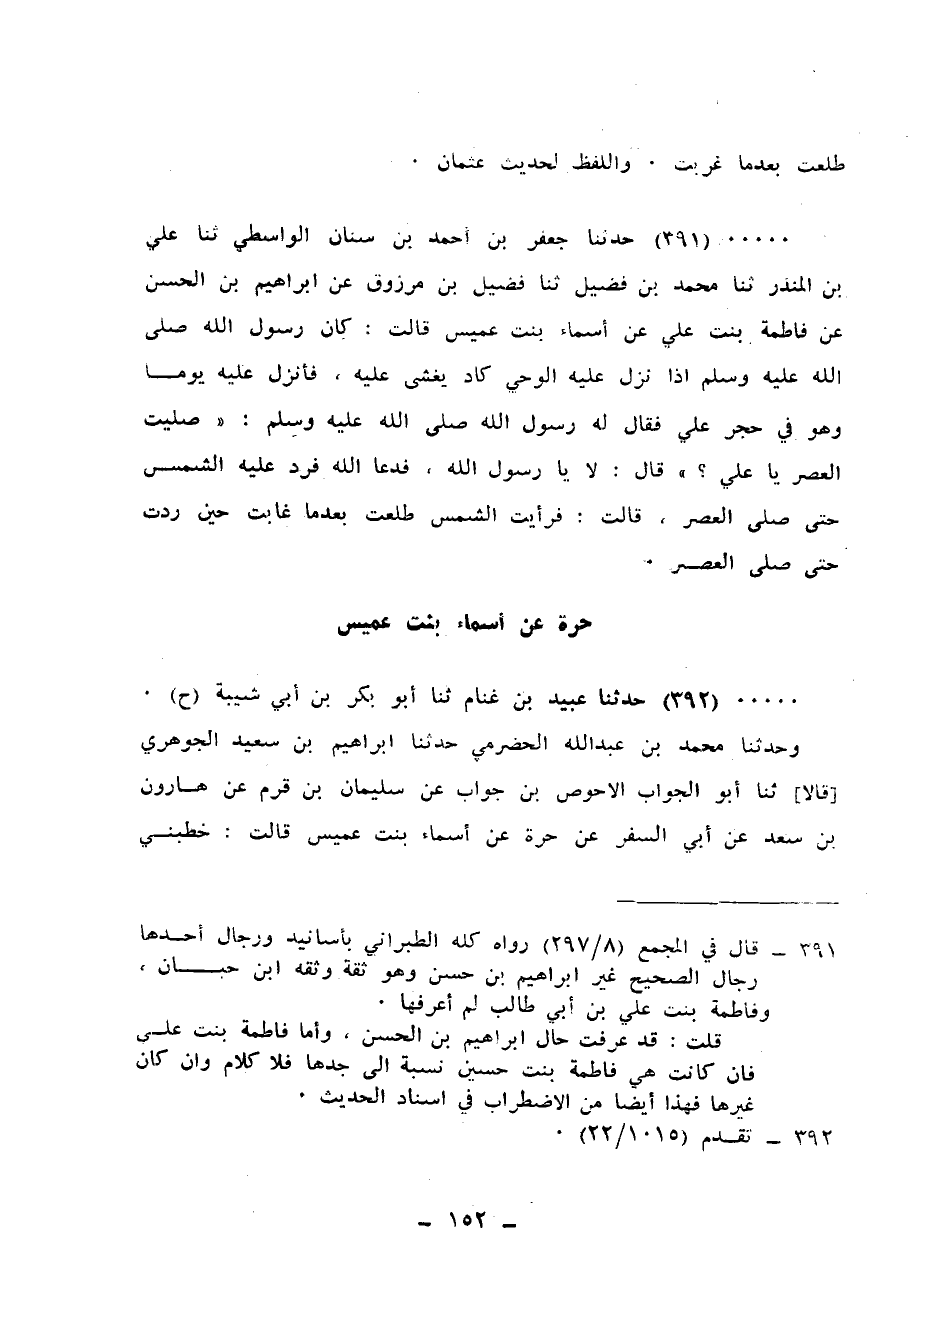 طلعت بعدما غربت ٠ واللفظ لحديث عثمان ٠
٠٠٠٠٠ (٣٩١) حدثنا جعفر بن أحمد بن سنان الواسطي ثنا علي
بن المنذر ثنا محمد بن فضيل ثنا فضيل بن مرزوق عن ابراهيم بن الحسن
عن فاطمة بنت علي عن أسماء بنت عميس قالت : كان رسول الله صلى
الله عليه وسلم اذا نزل عليه الوحي كاد يغشى عليه ، فأنزل عليه يومـــا
وهو في حجر علي فقال له رسول الله صلى الله عليه وسلم : « صليت
العصر يا علي ؟ » قال : لا يا رسول الله ، فدعا الله فرد عليه الشمـــس
حتى صلى العصر ، قالت : فرأيت الشمس طلعت بعدما غابت حين ردت
حتى صلى العصـــر ٠
حرة عن أسماء بنت عميس
٠٠٠٠٠ (٣٩٢) حدثنا عبيد بن غنام ثنا أبو بكر بن أبي شيبة (ح) ٠
وحدثنا محمد بن عبدالله الحضرمي حدثنا ابراهيم بن سعيد الجوهري
[قالا] ثنا أبو الجواب الاحوص بن جواب عن سليمان بن قرم عن هـارون
بن سعد عن أبي السفر عن حرة عن أسماء بنت عميس قالت : خطبنـي
٣٩١ ــ قال في المجمع (٢٩٧/٨) رواه كله الطبراني بأسانيد ورجال أحـدها
رجال الصحيح غير ابراهيم بن حسن وهو ثقة وثقه ابن حبـــان ،
وفاطمة بنت علي بن أبي طالب لم أعرفها ٠
قلت : قد عرفت حال ابراهيم بن الحسن ، وأما فاطمة بنت علـى
فان كانت هي فاطمة بنت حسين نسبة الى جدها فلا كلام وان كان
غيرها فهذا أيضا من الاضطراب في اسناد الحديث ٠
٣٩٢ ــ تقـدم (٢٢/١٠١٥) ٠
ــ ١٥٢ ــ